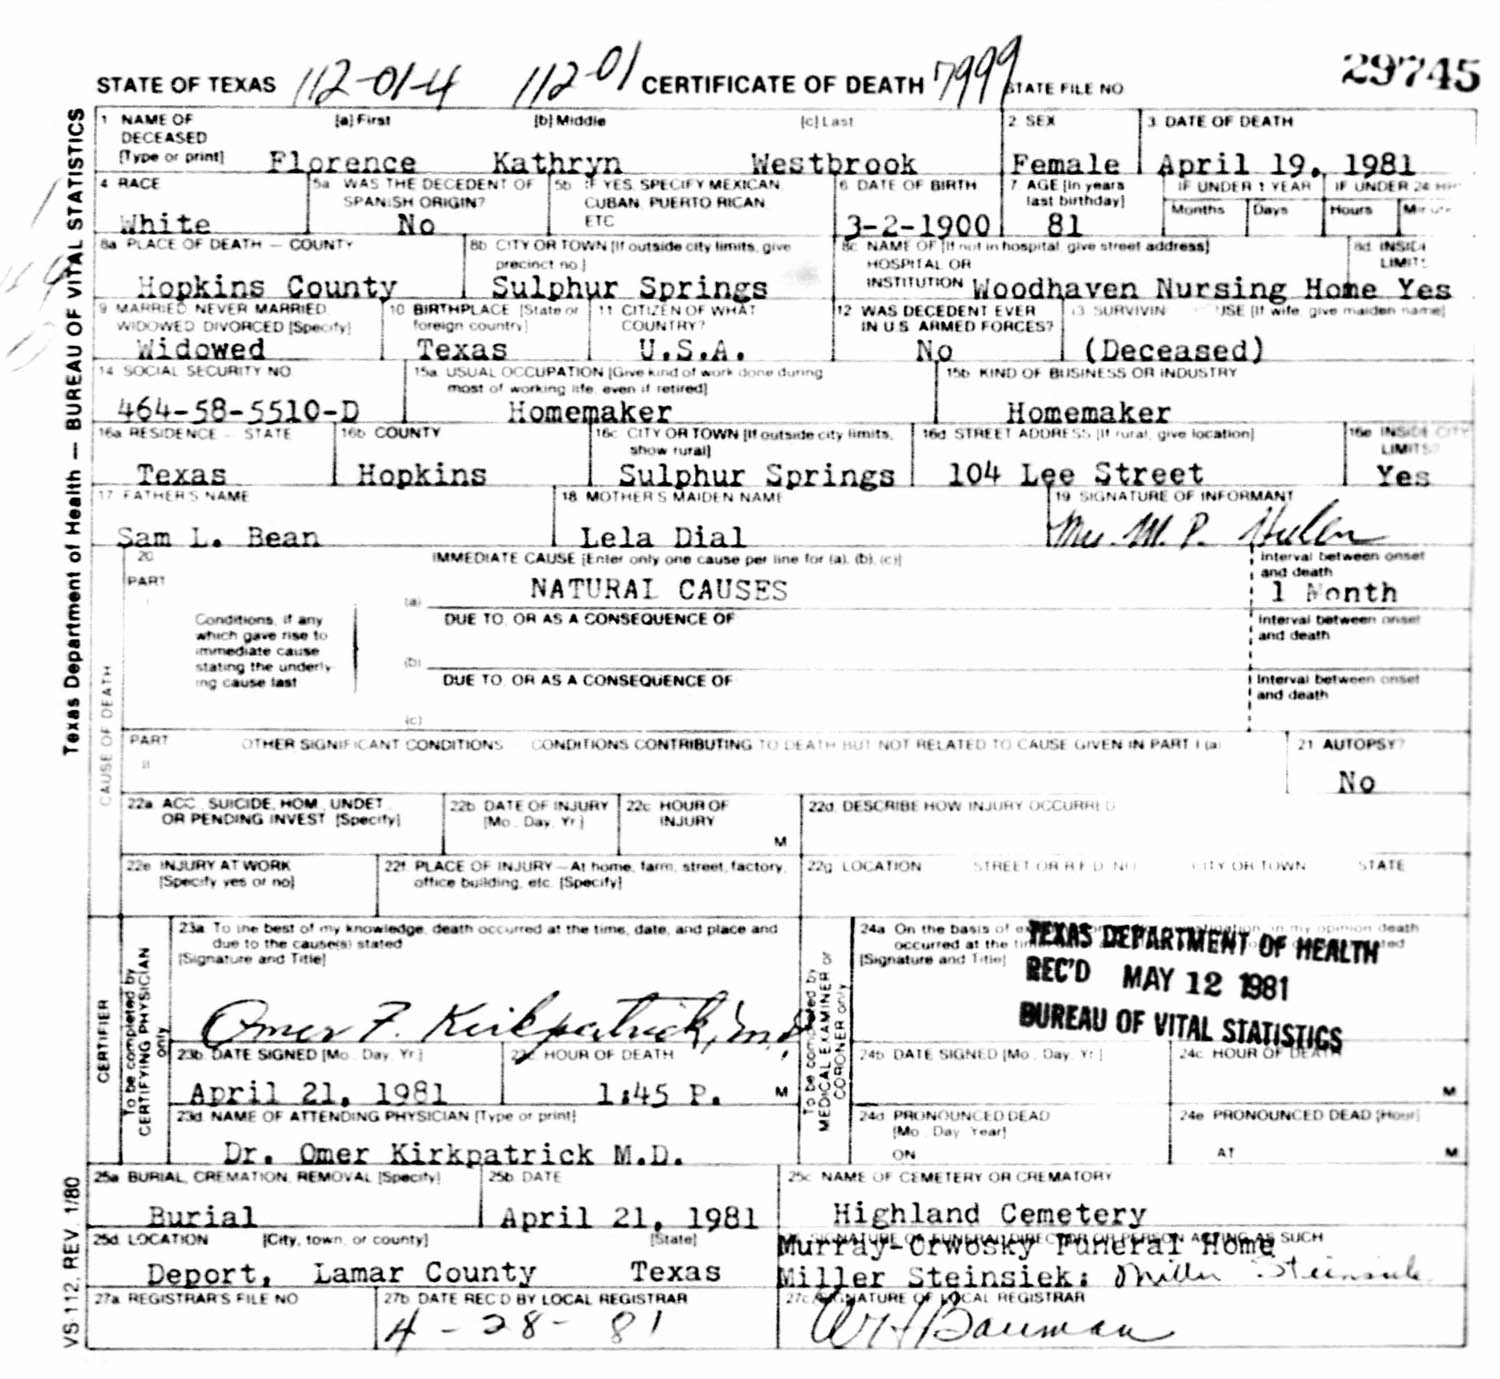 STATE OF TEXAS 112-01-4 112-01 CERTIFICATE OF DEATH 7999 STATE FILE NO. 29745
Texas Department of Health — BUREAU OF VITAL STATISTICS
1 NAME OF DECEASED [Type or print] [a] First [b] Middle [c] Last
Florence Kathryn Westbrook
2 SEX
Female
3 DATE OF DEATH
April 19, 1981
4 RACE
White
5a WAS THE DECEDENT OF SPANISH ORIGIN?
No
5b IF YES, SPECIFY MEXICAN, CUBAN, PUERTO RICAN ETC
6 DATE OF BIRTH
3-2-1900
7 AGE [In years last birthday]
81
IF UNDER 1 YEAR
Months Days
IF UNDER 24 HRS
Hours Minutes
8a PLACE OF DEATH — COUNTY
Hopkins County
8b CITY OR TOWN [If outside city limits, give precinct no.]
Sulphur Springs
8c NAME OF [If not in hospital, give street address] HOSPITAL OR INSTITUTION
Woodhaven Nursing Home
8d INSIDE LIMITS
Yes
9 MARRIED, NEVER MARRIED, WIDOWED, DIVORCED [Specify]
Widowed
10 BIRTHPLACE [State or foreign country]
Texas
11 CITIZEN OF WHAT COUNTRY?
U.S.A.
12 WAS DECEDENT EVER IN U.S. ARMED FORCES?
No
13 SURVIVIN USE [If wife, give maiden name]
(Deceased)
14 SOCIAL SECURITY NO.
464-58-5510-D
15a USUAL OCCUPATION [Give kind of work done during most of working life, even if retired]
Homemaker
15b KIND OF BUSINESS OR INDUSTRY
Homemaker
16a RESIDENCE — STATE
Texas
16b COUNTY
Hopkins
16c CITY OR TOWN [If outside city limits, show rural]
Sulphur Springs
16d STREET ADDRESS [If rural, give location]
104 Lee Street
16e INSIDE CITY LIMITS?
Yes
17 FATHER'S NAME
Sam L. Bean
18 MOTHER'S MAIDEN NAME
Lela Dial
19 SIGNATURE OF INFORMANT
Mrs. M. P.
CAUSE OF DEATH
20 PART I
IMMEDIATE CAUSE [Enter only one cause per line for (a), (b), (c)]
(a) NATURAL CAUSES
Interval between onset and death
1 Month
Conditions, if any which gave rise to immediate cause stating the underlying cause last
DUE TO, OR AS A CONSEQUENCE OF
Interval between onset and death
(b)
DUE TO, OR AS A CONSEQUENCE OF
Interval between onset and death
(c)
PART II OTHER SIGNIFICANT CONDITIONS CONDITIONS CONTRIBUTING TO DEATH BUT NOT RELATED TO CAUSE GIVEN IN PART I (a)
21 AUTOPSY?
No
22a ACC., SUICIDE, HOM., UNDET. OR PENDING INVEST [Specify]
22b DATE OF INJURY [Mo., Day, Yr.]
22c HOUR OF INJURY
M
22d DESCRIBE HOW INJURY OCCURRED
22e INJURY AT WORK [Specify yes or no]
22f PLACE OF INJURY — At home, farm, street, factory, office building, etc. [Specify]
22g LOCATION STREET OR R.F.D. NO. CITY OR TOWN STATE
CERTIFIER
To be completed by CERTIFYING PHYSICIAN only
23a To the best of my knowledge, death occurred at the time, date, and place and due to the cause(s) stated
[Signature and Title]
Omer F. Kirkpatrick, M.D.
23b DATE SIGNED [Mo., Day, Yr.]
April 21, 1981
23c HOUR OF DEATH
1:45 P. M
23d NAME OF ATTENDING PHYSICIAN [Type or print]
Dr. Omer Kirkpatrick M.D.
To be completed by MEDICAL EXAMINER or CORONER only
24a On the basis of in my opinion death occurred at the
[Signature and Title]
TEXAS DEPARTMENT OF HEALTH
REC'D MAY 12 1981
BUREAU OF VITAL STATISTICS
24b DATE SIGNED [Mo., Day, Yr.]
24c HOUR OF DEATH
M
24d PRONOUNCED DEAD [Mo., Day, Year]
ON
24e PRONOUNCED DEAD [Hour]
AT M
25a BURIAL, CREMATION, REMOVAL [Specify]
Burial
25b DATE
April 21, 1981
25c NAME OF CEMETERY OR CREMATORY
Highland Cemetery
25d LOCATION [City, town, or county] [State]
Deport, Lamar County Texas
SIGNATURE OF FUNERAL DIRECTOR OR PERSON ACTING AS SUCH
Murray-Orwosky Funeral Home
Miller Steinsiek: Miller Steinsiek
27a REGISTRAR'S FILE NO
27b DATE REC'D BY LOCAL REGISTRAR
4-28-81
27c SIGNATURE OF LOCAL REGISTRAR
Bauman
VS-112, REV. 1/80